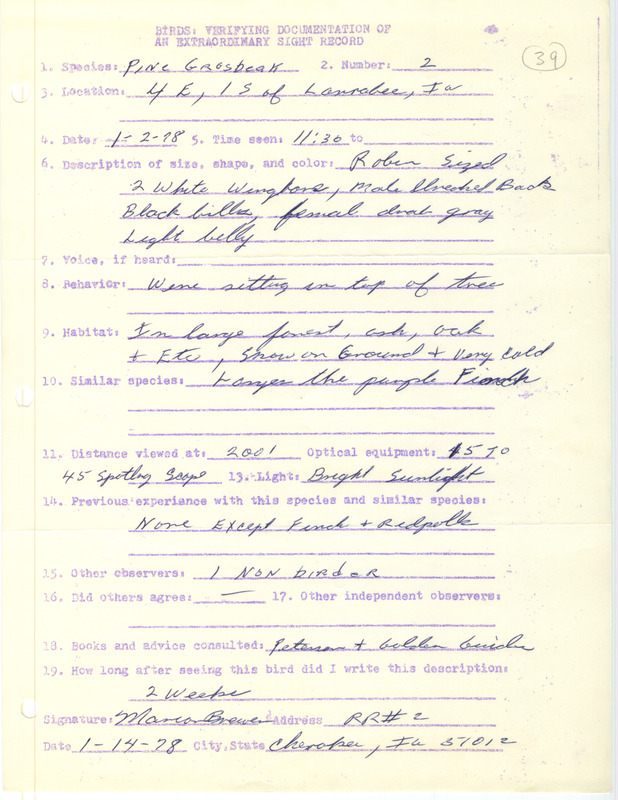 BIRDS: VERIFYING DOCUMENTATION OF
AN EXTRAORDINARY SIGHT RECORD
39
1. Species: Pine Grosbeak 2. Number: 2
3. Location: 4 E, 1 S of Larrabee, Ia
4. Date: 1-2-78 5. Time seen: 11:30 to
6. Description of size, shape, and color: Robin Sized
2 White Wingbars, Male Back
Black bills, femal gray
Light belly
7. Voice, if heard:
8. Behavior: Were sitting in top of tree
9. Habitat: In large forest, ash, oak
+ Etc, Snow on Ground + Very Cold
10. Similar species: Larger the purple Finch
11. Distance viewed at: 200' Optical equipment: 15 To
45 Spotting Scope 13. Light: Bright Sunlight
14. Previous experience with this species and similar species:
None Except Finch + Redpolls
15. Other observers: 1 Non birder
16. Did others agree: — 17. Other independent observers:
18. Books and advice consulted: Peterson + Golden Guides
19. How long after seeing this bird did I write this description:
2 Weeks
Signature: Brewer Address RR#2
Date 1-14-78 City, State Cherokee, Ia 51012